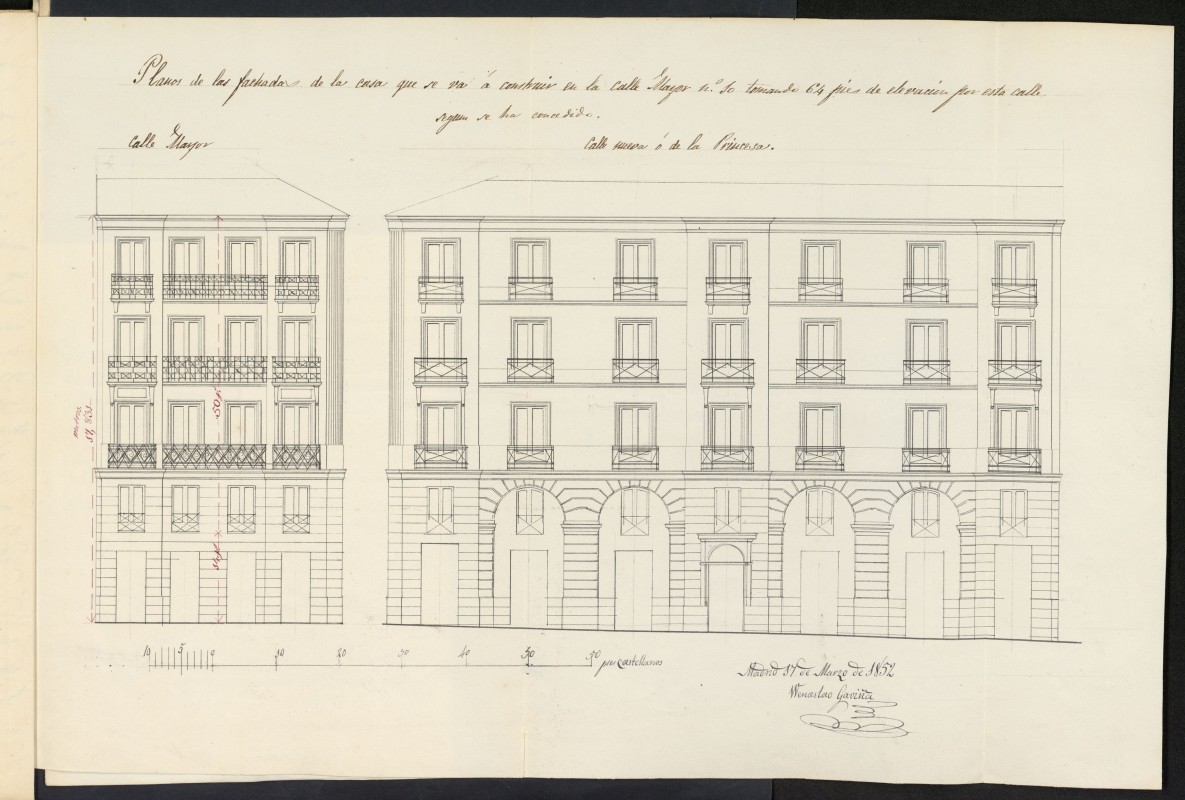 Planos de las fachadas de la casa que se va á construir en la calle Mayor n.º 10 tomando 64 pies de elevacion por esta calle
segun se ha concedido.
Calle Mayor
Calle nueva ó de la Princesa.
50 p.
metros
10 5 0 10 20 30 40 50 pies castellanos
Madrid 17 de Marzo de 1852
Wenceslao Gaviña